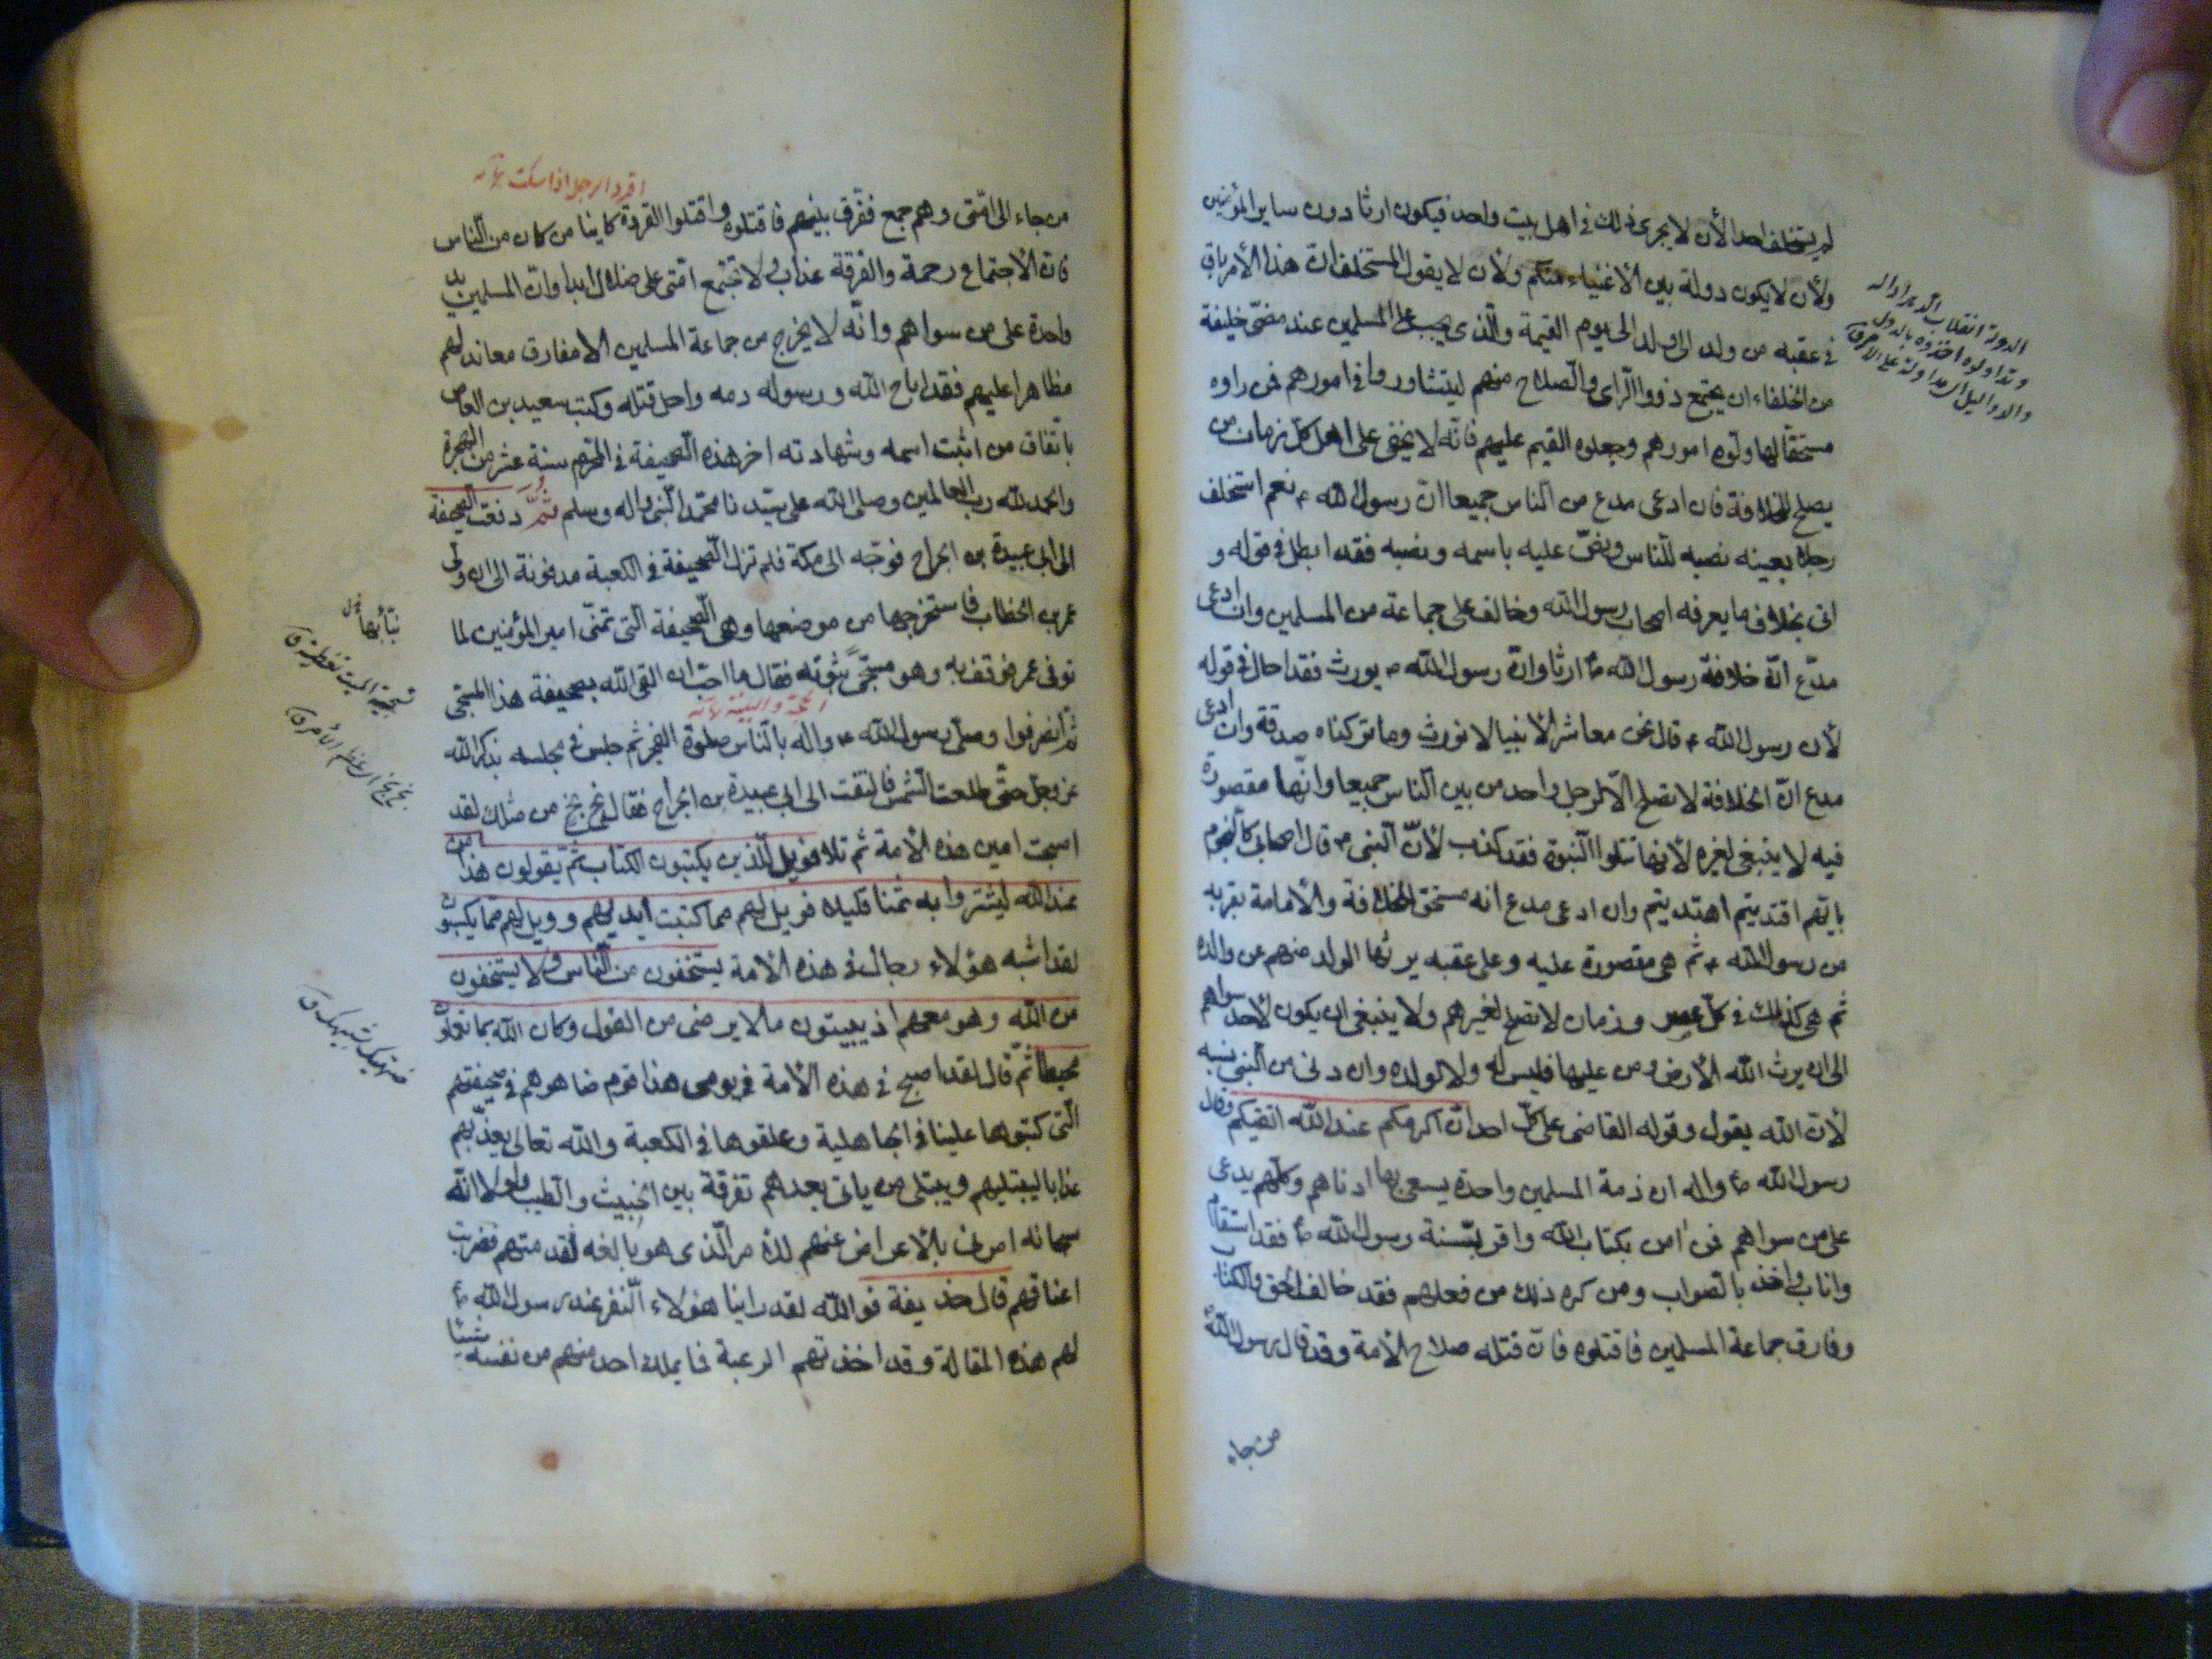 لم يستخلف احدا لأن لا يجرى ذلك فى اهل بيت واحد فيكون ارثا دون ساير المؤمنين
ولأن لا يكون دولة بين الأغنياء منكم ولأن لا يقول المستخلف ان هذا الأمر باق
فى عقبه من ولد الى ولد الى يوم القيمة والّذى يجب على المسلمين عند مضىّ خليفة
من الخلفاء ان يجتمع ذووا الرّاى والصّلاح منهم ليتشاوروا فى امورهم فمن راوه
مستحقّا لها ولّوه امورهم وجعلوه القيم عليهم فانّه لا يخفى على اهل كلّ زمان من
يصلح للخلافة فان ادعى مدع من النّاس جميعا ان رسول الله ص نعم استخلف
رجلا بعينه نصبه للنّاس ونصّ عليه باسمه ونسبه فقد ابطل فى قوله و
اتى بخلاف ما يعرفه اصحاب رسول الله وخالف على جماعة من المسلمين وان ادعى
مدّع انّ خلافة رسول الله ص ارثا وانّ رسول الله ص يورث فقد احال فى قوله
لأن رسول الله ص قال نحن معاشر الأنبيا لا نورث وما تركناه صدقة وان ادعى
مدع انّ الخلافة لا تصلح الّا لرجل واحد من بين النّاس جميعا وانّها مقصورة
فيه لا ينبغى لغيره لأنها تتلوا النّبوة فقد كذب لأنّ النّبى ص قال اصحابى كالنّجوم
بايّهم اقتديتم اهتديتم وان ادعى مدع انه مستحق الخلافة والأمامة بقربه
من رسول الله ص ثم هى مقصورة عليه وعلى عقبه يرثها الولد منهم من والده
ثم هى كذلك فى كلّ عصر وزمان لا تصلح لغيرهم ولا ينبغى ان يكون لأحد سواهم
الى ان يرث الله الأرض ومن عليها فليس له ولا لولده وان دنى من النّبى نسبه
لأن الله يقول وقوله القاضى على كلّ احد انّ اكرمكم عند الله اتقيكم وقال
رسول الله ص واله ان ذمة المسلمين واحدة يسعى بها ادناهم وكلّهم يدعى
على من سواهم فمن امن بكتاب الله واقر بسّنة رسول الله ص فقد استقام
واناب واخذ بالصّواب ومن كره ذلك من فعلهم فقد خالف الحق والكتاب
وفارق جماعة المسلمين فاقتلوه فان قتله صلاح الأمة وقد قال رسول الله
من جاء
من جاء الى امّتى وهم جمع ففرق بينهم فاقتلوه واقتلوا الفردة كاينا من كان من النّاس
فان الأجتماع رحمة والفرقة عذاب ولا تجتمع امّتى على ضلال ابدا وان المسلمين يد
واحدة على من سواهم وانّه لا يخرج من جماعة المسلمين الا مفارق معاند لهم
مظاهر عليهم فقد اباح الله ورسوله دمه واحل قتله وكتب سعيد بن العاص
باتّفاق من اثبت اسمه وشهادته اخر هذه الصّحيفة فى المحرّم سنة عشر من الهجرة
والحمد لله رب العالمين وصلى الله على سيّدنا محمّد النّبى واله وسلم ثمّ دفعت الصحيفة
الى ابى عبيدة بن الجراح فوجّه الى مكة فلم تزل الصّحيفة فى الكعبة مدفونة الى ان ولى
عمر بن الخطاب فاستخرجها من موضعها وهى الصّحيفة الّتى تمنّى امير المؤمنين لما
توفى عمر فوقف به وهو مسجّى بثوبه فقال ما احب ان القى الله بصحيفة هذا المسجّى
ثمّ انصرفوا وصلّى رسول الله ص واله بالنّاس صلوة الفجر ثم جلس فى مجلسه يذكر الله
عز وجلّ حتّى طلعت الشّمس فالتفت الى ابى عبيدة بن الجراح فقال بخ بخ من مثلك لقد
اصبحت امين هذه الأمة ثم تلا فويل للّذين يكتبون الكتاب ثمّ يقولون هذا من
عند الله ليشتروا به ثمنا قليلا فويل لهم مما كتبت ايديهم وويل لهم ممّا يكسبون
لقد اشبه هؤلاء رجال فى هذه الأمة يستخفون من النّاس ولا يستخفون
من الله وهو معهم اذ يبيتون ما لا يرضى من القول وكان الله بما تعملون
محيطا ثمّ قال لقد اصبح فى هذه الأمة فى يومى هذا قوم ضاهوهم فى صحيفتهم
الّتى كتبوها علينا فى الجاهلية وعلقوها فى الكعبة والله تعالى يعذّبهم
عذابا ليبتليهم ويبتلى من ياتى بعدهم تفرقة بين الخبيث والطيب ولولا انّه
سبحانه امرنى بالأعراض عنهم للأمر الّذى هو بالغه لقد متهم فضربت
اعناقهم قال حذيفة فوالله لقد راينا هؤلاء النّفر عند رسول الله ص
لهم هذه المقالة وقد اخذتهم الرعبة فما يملك احد منهم من نفسه شيئا